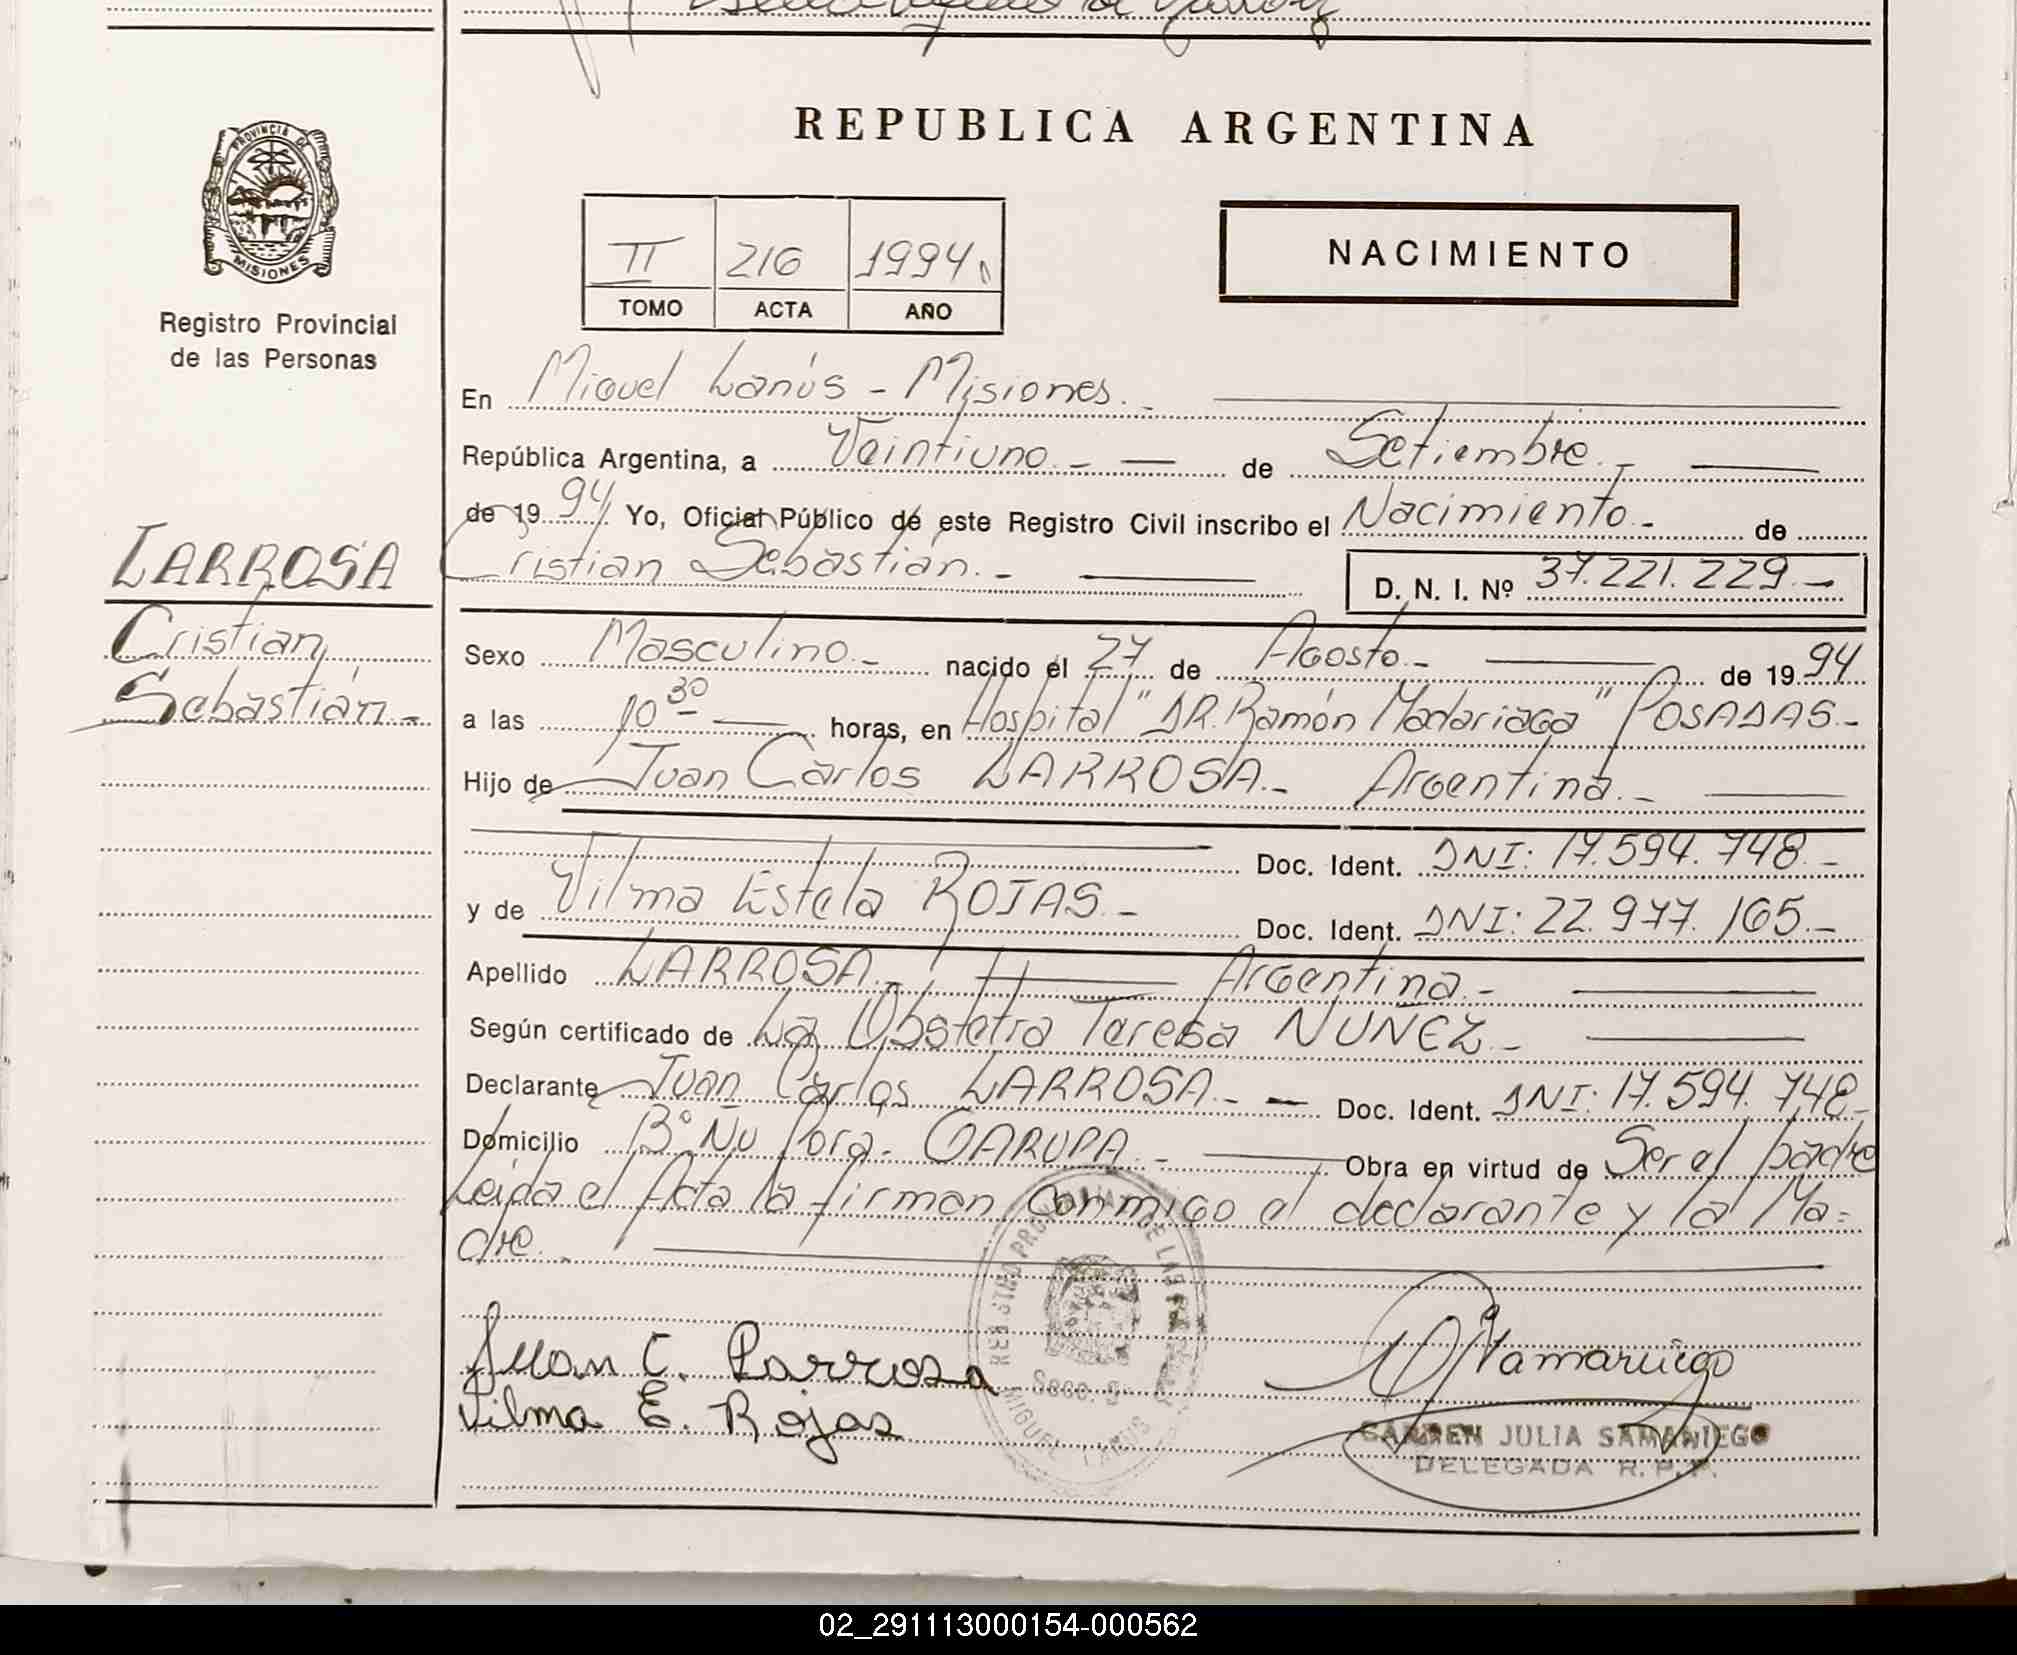 REPUBLICA ARGENTINA
PROVINCIA DE
MISIONES
Registro Provincial
de las Personas
II 216 1994
TOMO ACTA AÑO
NACIMIENTO
En Miguel Lanús - Misiones.-
República Argentina, a Veintiuno.- de Setiembre.-
de 1994 Yo, Oficial Público de este Registro Civil inscribo el Nacimiento.- de
Cristian Sebastián.- D. N. I. Nº 37.221.229.-
LARROSA
Cristian
Sebastián.-
Sexo Masculino.- nacido el 27 de Agosto.- de 1994
a las 10 30 horas, en Hospital "DR. Ramón Madariaga" POSADAS.-
Hijo de Juan Carlos LARROSA.- Argentina.-
Doc. Ident. DNI: 17.594.748.-
y de Vilma Estela ROJAS.- Doc. Ident. DNI: 22.977.165.-
Apellido LARROSA.- Argentina.-
Según certificado de La Obstetra Teresa NUÑEZ.-
Declarante Juan Carlos LARROSA.- Doc. Ident. DNI: 17.594.748.-
Domicilio Bº Ñu Pora.- GARUPA.- Obra en virtud de Ser el padre
Leida el Acta la firman conmigo el declarante y la Ma=
dre.-
Juan C. Larrosa
Vilma E. Rojas
REGISTRO PROVINCIAL DE LAS
Secc. 9
MIGUEL LANUS
Samaniego
CARMEN JULIA SAMANIEGO
DELEGADA R.P.P.
02_291113000154-000562